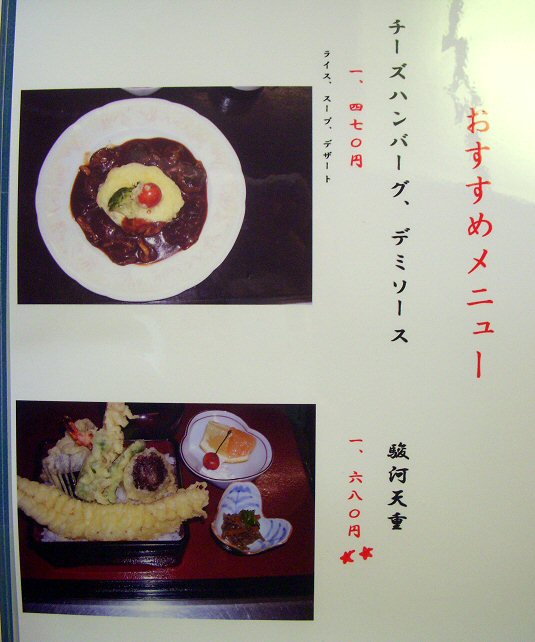 おすすめメニュー
チーズハンバーグ、デミソース
一、四七〇円
ライス、スープ、デザート
駿河天重
一、六八〇円